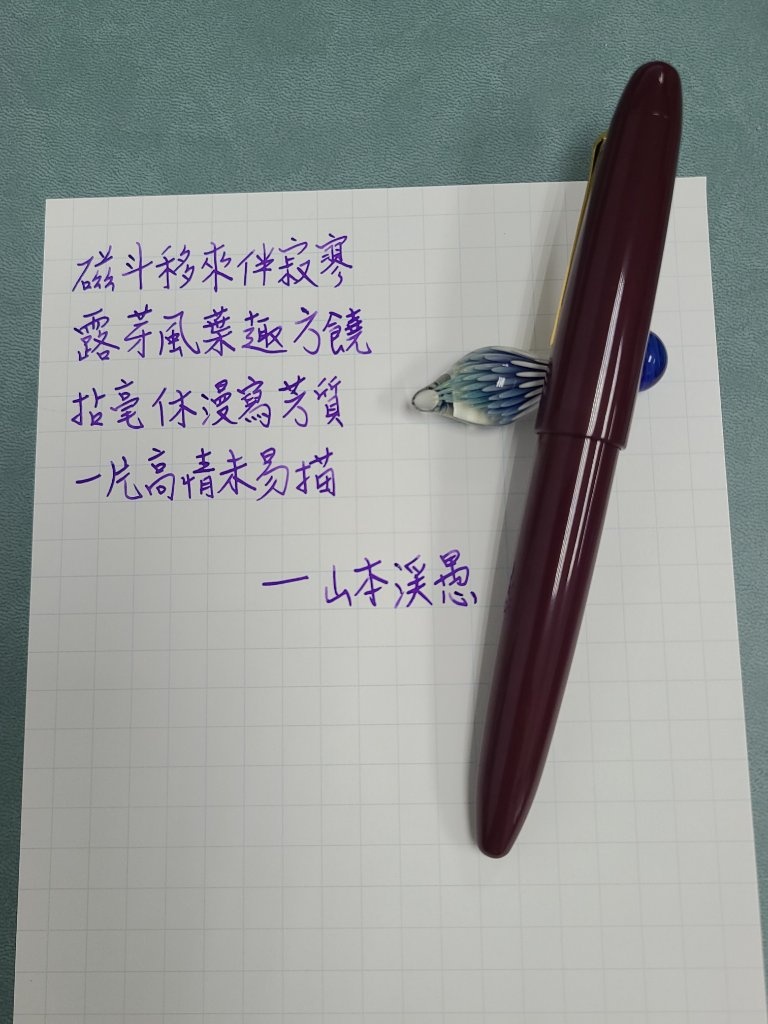 磁斗移來伴寂寥
露芽風葉趣方饒
拈毫休漫寫芳質
一片高情未易描
— 山本渓愚